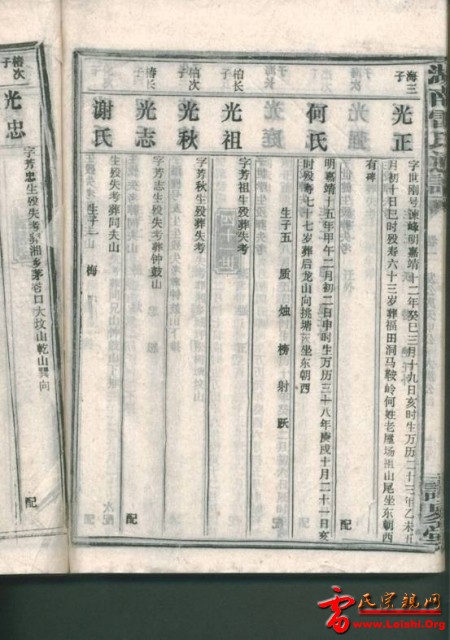 海三子
光正
字世刚号谏峰明嘉靖十二年癸巳三月十九日亥时生万历二十三年乙未
月初十日巳时殁寿六十三岁葬福田洞马鞍岭何姓老屋场祖山尾坐东朝西
有碑
配
何氏
明嘉靖十五年甲午二月初二日申时生万历三十八年庚戌十月二十一日亥
时殁寿七十七岁葬后龙山向挑塘坐东朝西
生子五 质 烛 榜 射 跃
柏长子
光祖
字芳祖生殁失考葬失考
柏次子
光秋
字芳秋生殁葬失考
椿长子
光志
字芳志生殁失考葬钟鼓山
配
谢氏
生殁失考葬阿夫山
生子一 梅
椿次子
光忠
字芳忠生殁失考葬湘乡茅卷口大坟山乾山巽向
配
雷氏宗亲网
www.Leishi.Org